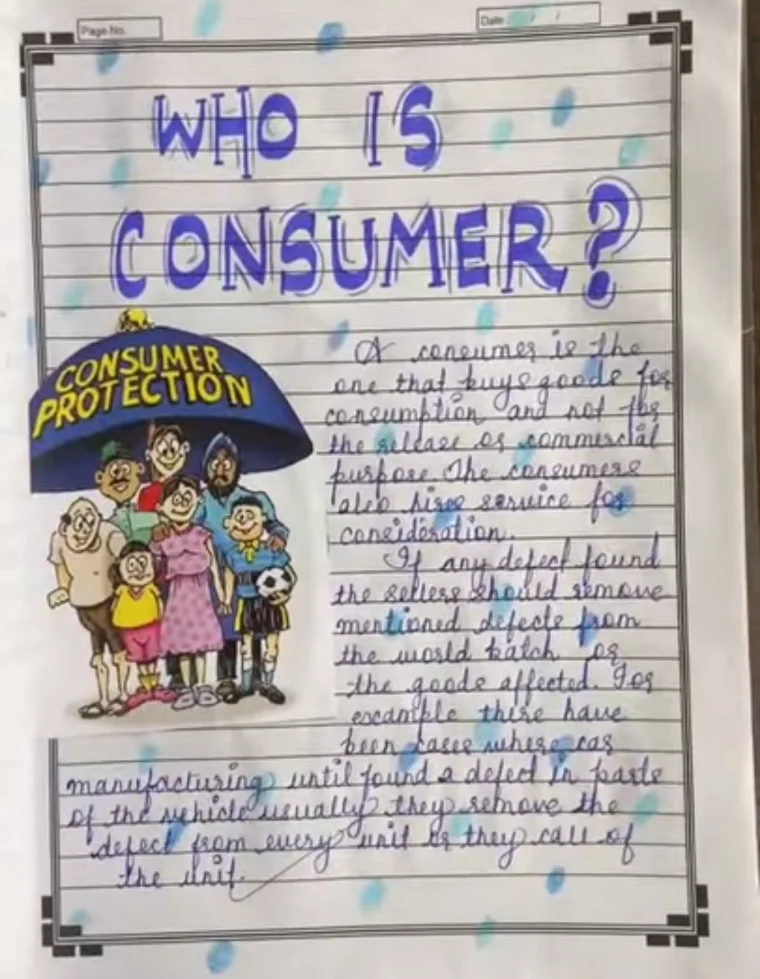 Page No.
Date
WHO IS
CONSUMER?
CONSUMER
PROTECTION
A consumer is the
one that buys goods for
consumption and not for
the release or commercial
purpose. The consumers
also hires service for
consideration.
If any defect found
the sellers should remove
mentioned defects from
the world batch or
the goods affected. For
example there have
been cases where car
manufacturing until found a defect in parts
of the vehicle usually they remove the
defect from every unit or they call of
the unit.